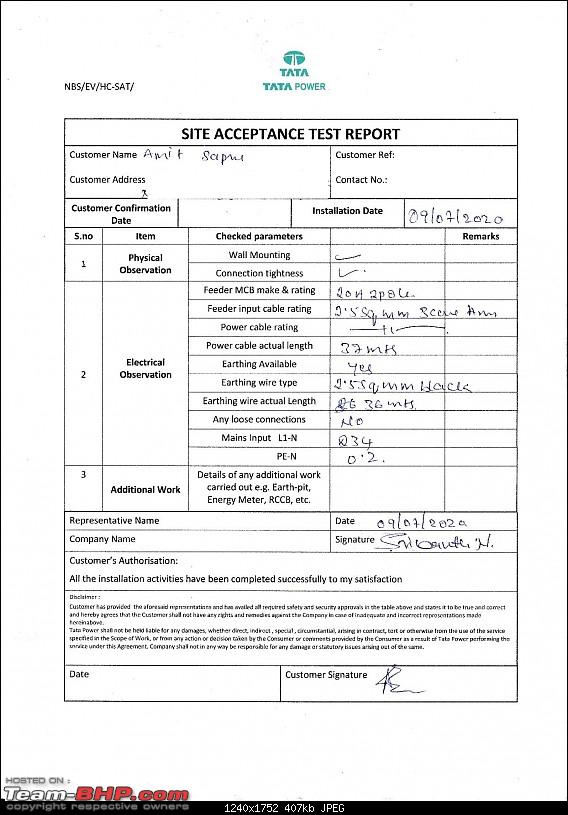 TATA
NBS/EV/HC-SAT/
TATA POWER
SITE ACCEPTANCE TEST REPORT
Customer Name Amit Sapre Customer Ref:
Customer Address Contact No.:
Customer Confirmation Date Installation Date 09/07/2020
S.no Item Checked parameters Remarks
1 Physical Observation Wall Mounting ✓
Connection tightness ✓
2 Electrical Observation Feeder MCB make & rating 20A 2pole
Feeder input cable rating 2.5 Sqmm 3core Arm
Power cable rating —11—
Power cable actual length 37 mts
Earthing Available Yes
Earthing wire type 2.5 Sqmm
Earthing wire actual Length 36 mts
Any loose connections NO
Mains Input L1-N 234
PE-N 0.2.
3 Additional Work Details of any additional work carried out e.g. Earth-pit, Energy Meter, RCCB, etc.
Representative Name Date 09/07/2020
Company Name Signature
Customer's Authorisation:
All the installation activities have been completed successfully to my satisfaction
Disclaimer :
Customer has provided the aforesaid representations and has availed all required safety and security approvals in the table above and states it to be true and correct
and hereby agrees that the Customer shall not have any rights and remedies against the Company in case of inadequate and incorrect representations made
hereinabove.
Tata Power shall not be held liable for any damages, whether direct, indirect , special , circumstantial, arising in contract, tort or otherwise from the use of the service
specified in the Scope of Work, or from any action or decision taken by the Consumer or comments provided by the Consumer as a result of Tata Power performing the
service under this Agreement. Company shall not in any way be responsible for any damage or statutory issues arising out of the same.
Date Customer Signature
HOSTED ON :
Team-BHP.com
copyright respective owners
1240x1752 407kb JPEG